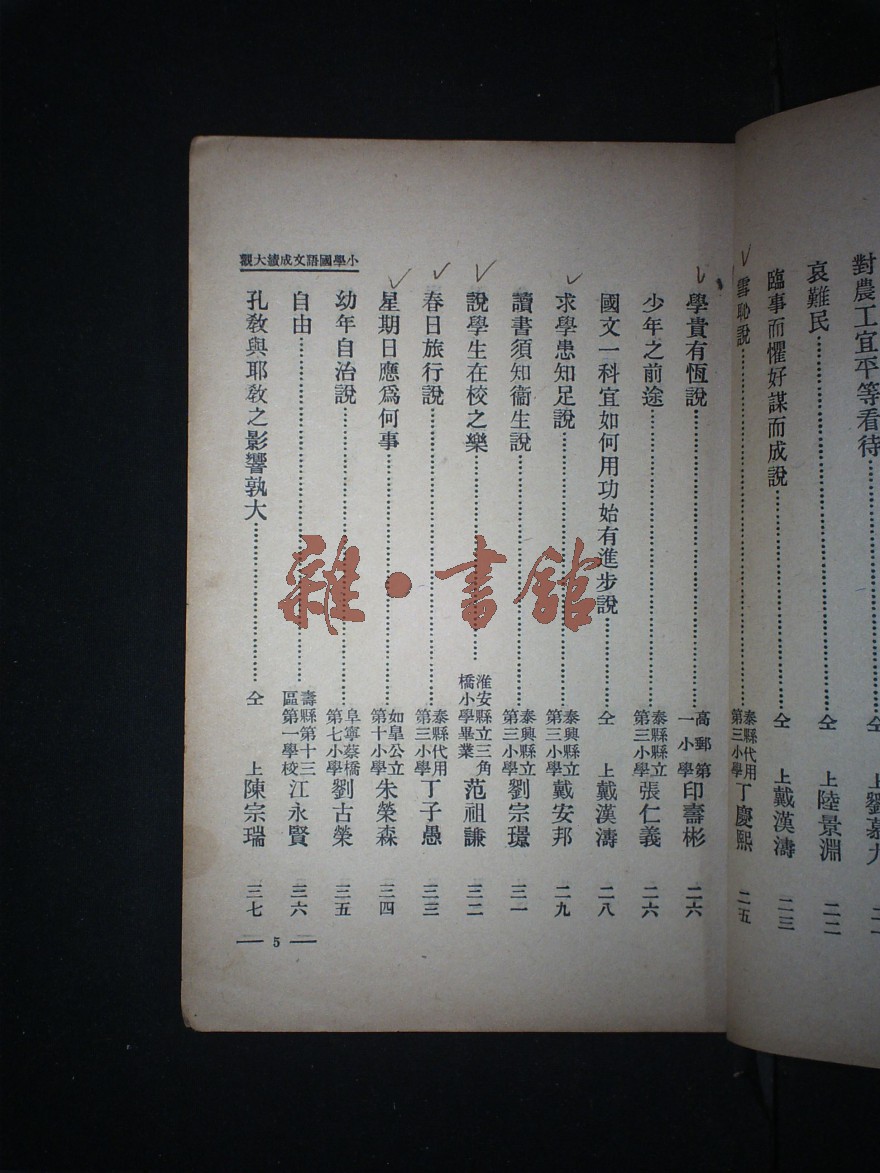 對農工宜平等看待 上劉慕
哀難民 仝上陸景淵 二二
臨事而懼好謀而成說 仝上戴漢濤 二三
雪恥說 泰縣代用第三小學 丁慶熙 二五
學貴有恆說 高郵第一小學 印壽彬 二六
少年之前途 泰縣縣立第三小學 張仁義 二六
國文一科宜如何用功始有進步說 仝上戴漢濤 二八
求學患知足說 泰興縣立第三小學 戴安邦 二九
讀書須知衞生說 泰興縣立第三小學 劉宗璟 三一
說學生在校之樂 淮安縣立三角橋小學畢業 范祖謙 三二
春日旅行說 泰縣代用第三小學 丁子愚 三三
星期日應爲何事 如皐公立第十小學 朱榮森 三四
幼年自治說 阜寧蔡橋第七小學 劉古榮 三五
自由 壽縣第十三區第一學校 江永賢 三六
孔敎與耶敎之影響孰大 仝上陳宗瑞 三七
小學國語文成績大觀
5
雜·書館